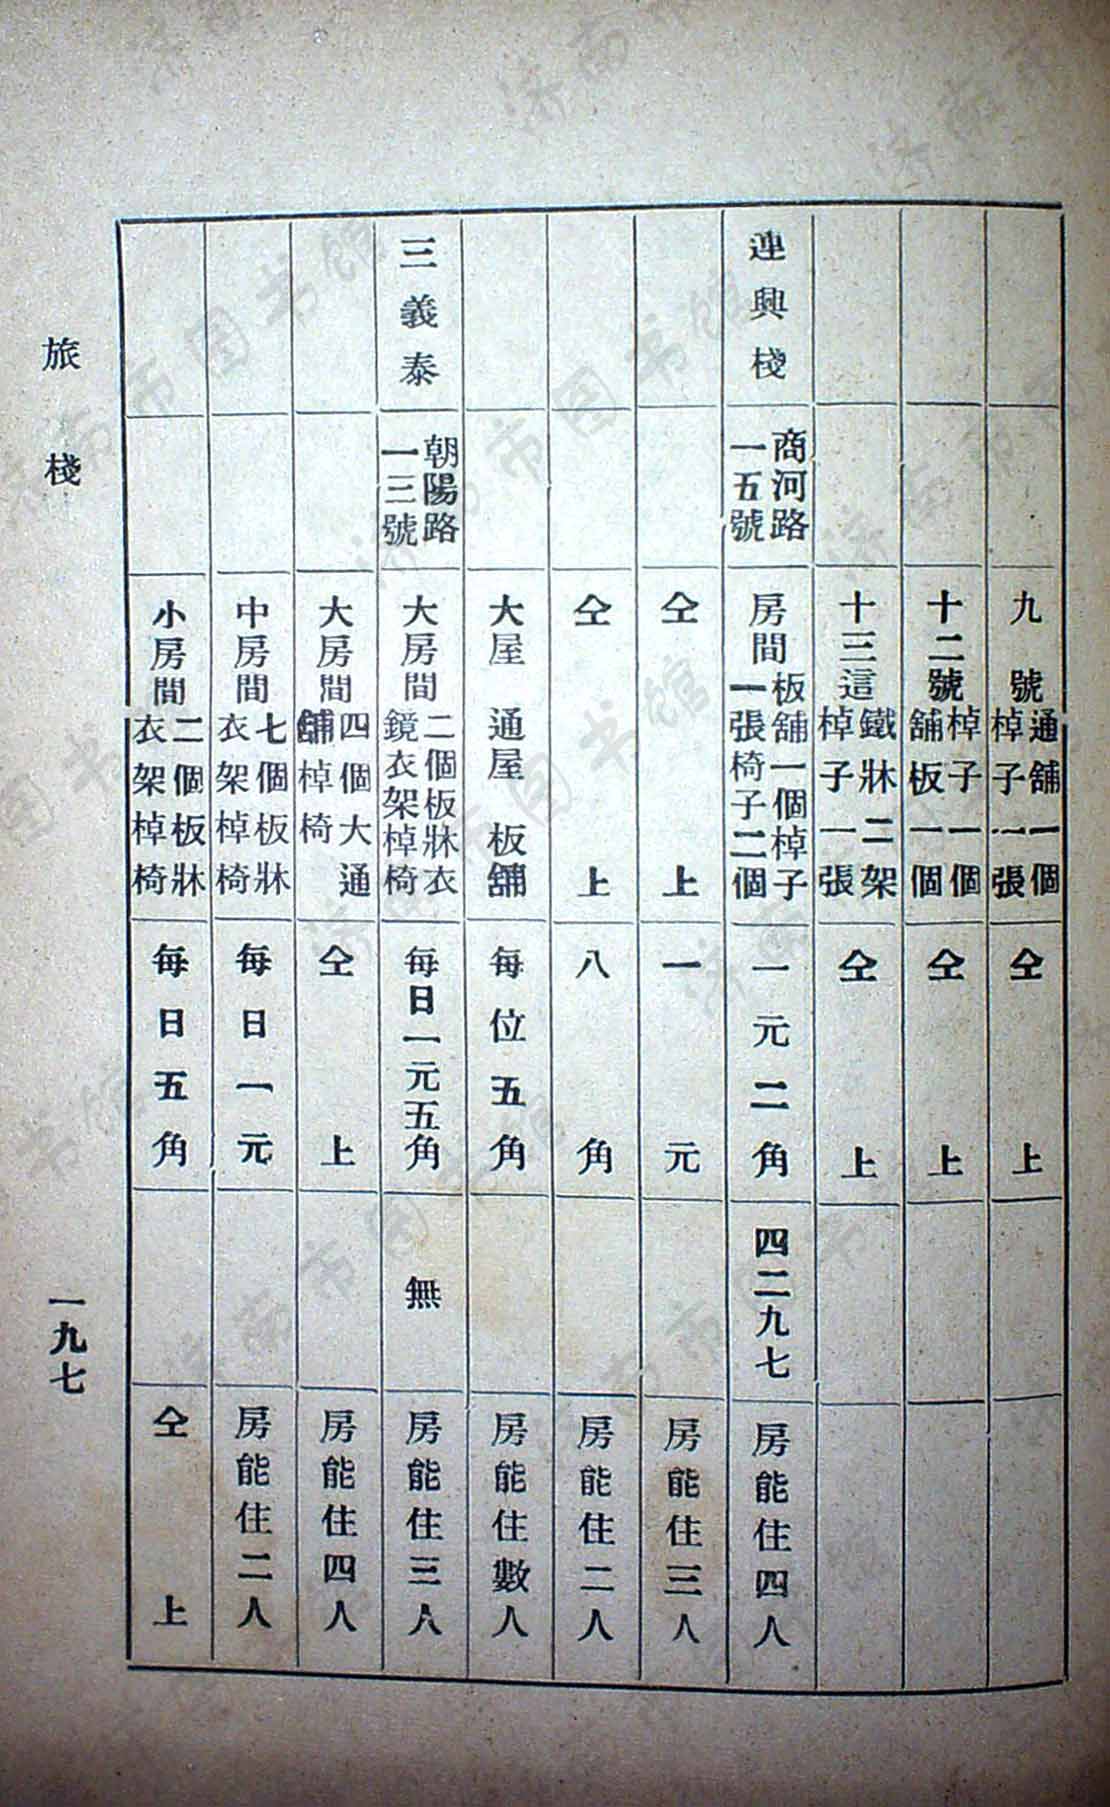 九號 通舖一個棹子一張 仝上
十二號 棹子一個舖板一個 仝上
十三這 鐵牀二架棹子一張 仝上
連興棧 商河路一五號 房間 板舖一個棹子一張椅子二個 一元二角 四二九七 房能住四人
仝上 一元 房能住三人
仝上 八角 房能住二人
大屋 通屋板舖 每位五角 房能住數人
三義泰 朝陽路一三號 大房間 二個板牀衣鏡衣架棹椅 每日一元五角 無 房能住三人
大房間 四個大通舖棹椅 仝上 房能住四人
中房間 七個板牀衣架棹椅 每日一元 房能住二人
小房間 二個板牀衣架棹椅 每日五角 仝上
旅棧
一九七
济南市图书馆